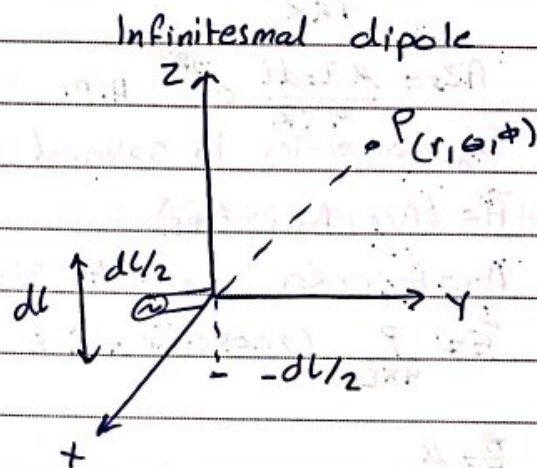 Infinitesmal dipole
Z
P(r, θ, φ)
dl/2
dl
Y
- dl/2
X